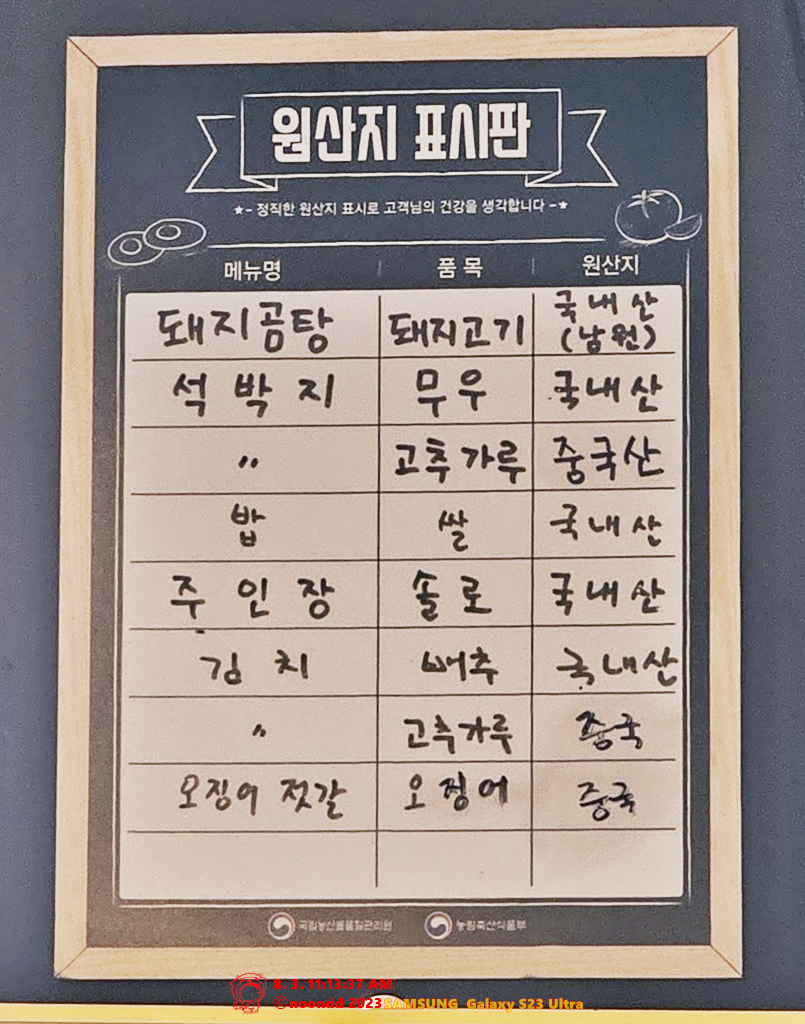 원산지 표시판
★- 정직한 원산지 표시로 고객님의 건강을 생각합니다 -★
메뉴명 품 목 원산지
돼지곰탕 돼지고기 국내산 (남원)
석박지 무우 국내산
〃 고추가루 중국산
밥 쌀 국내산
주인장 솔로 국내산
김치 배추 국내산
〃 고추가루 중국
오징어 젓갈 오징어 중국
국립농산물품질관리원 농림축산식품부
8. 3. 11:13:37 AM
©noondd 2023 SAMSUNG Galaxy S23 Ultra